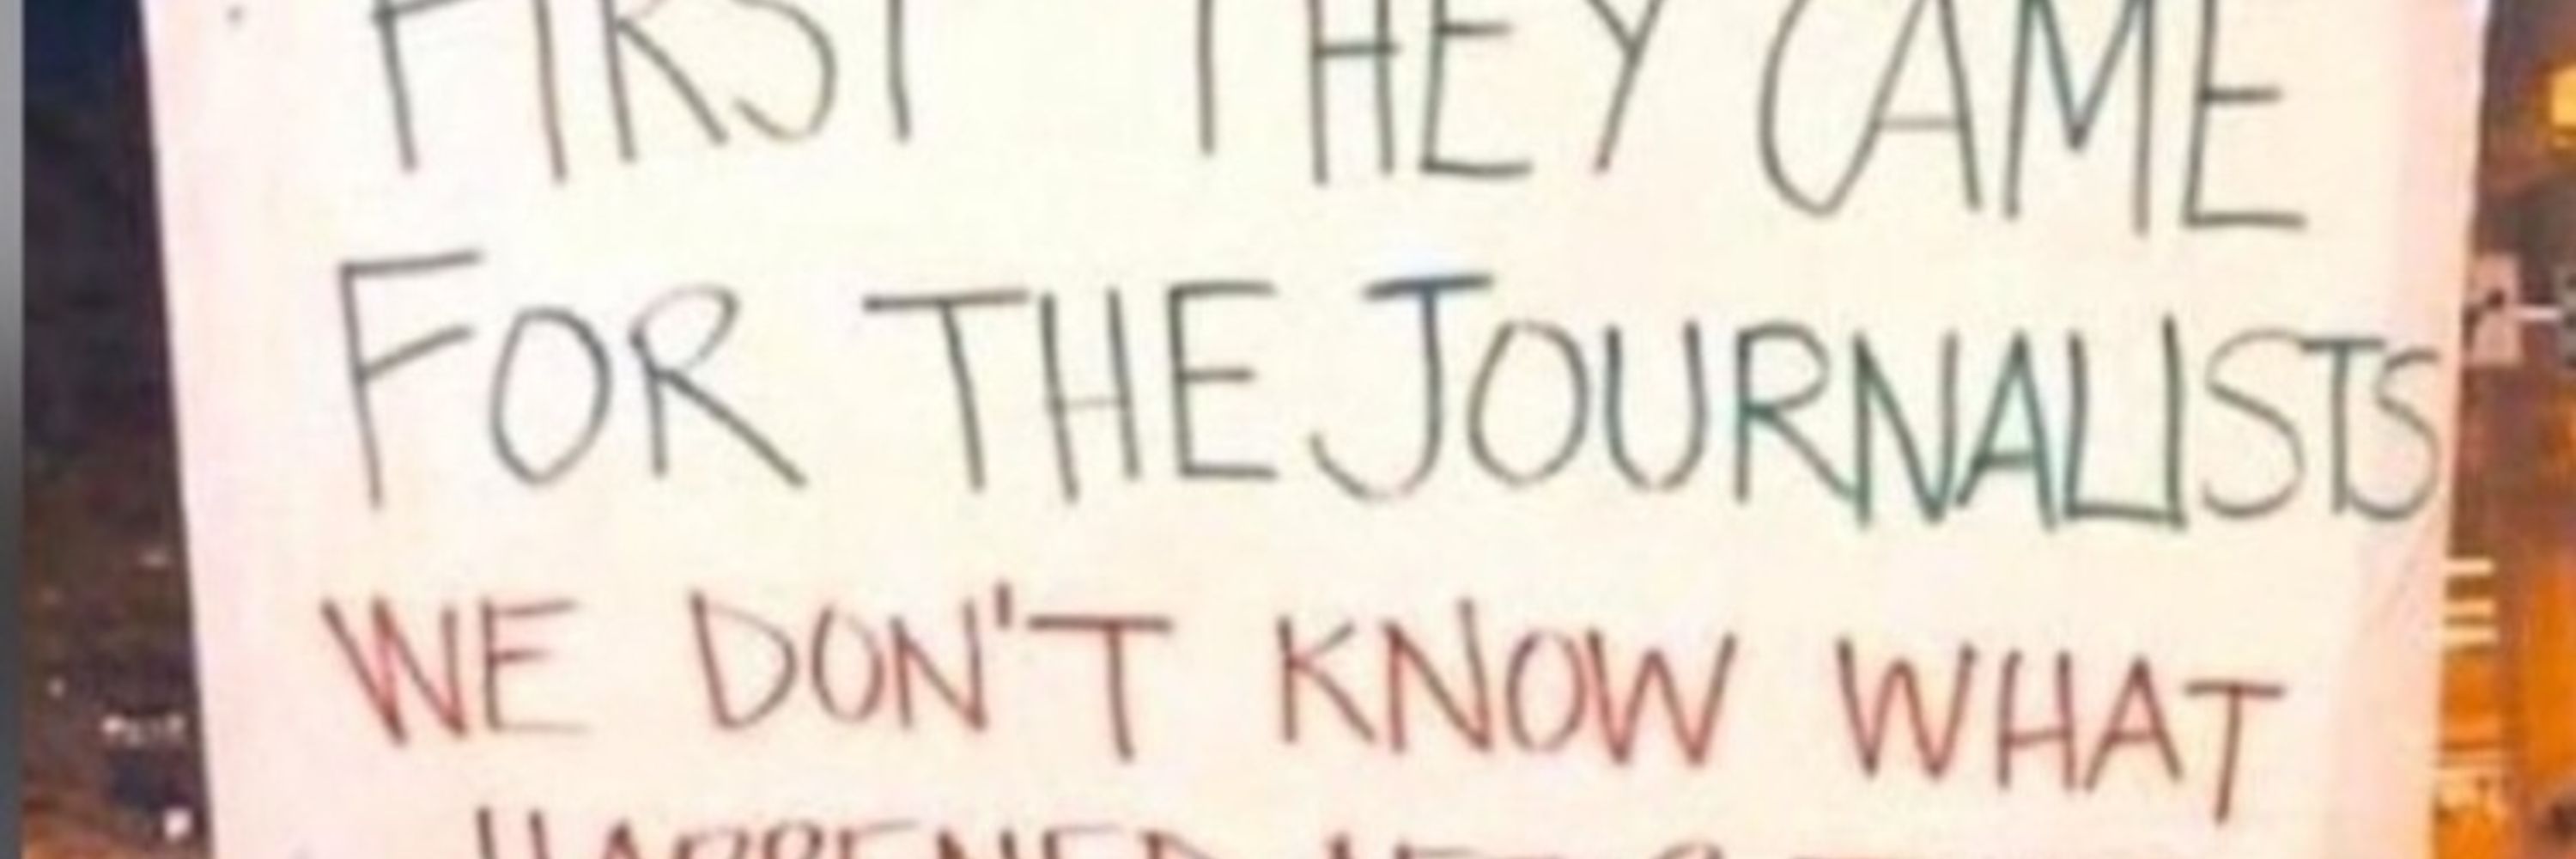 FIRST THEY CAME
FOR THE JOURNALISTS
WE DON'T KNOW WHAT
HAPPENED